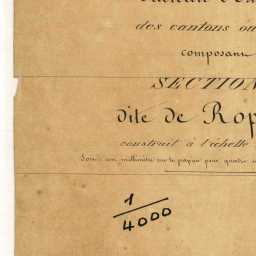 des cantons ou
composant
SECTION
dite de Rop
construit à l'échelle
Soit: un millimètre sur le papier pour quatre
1
4000